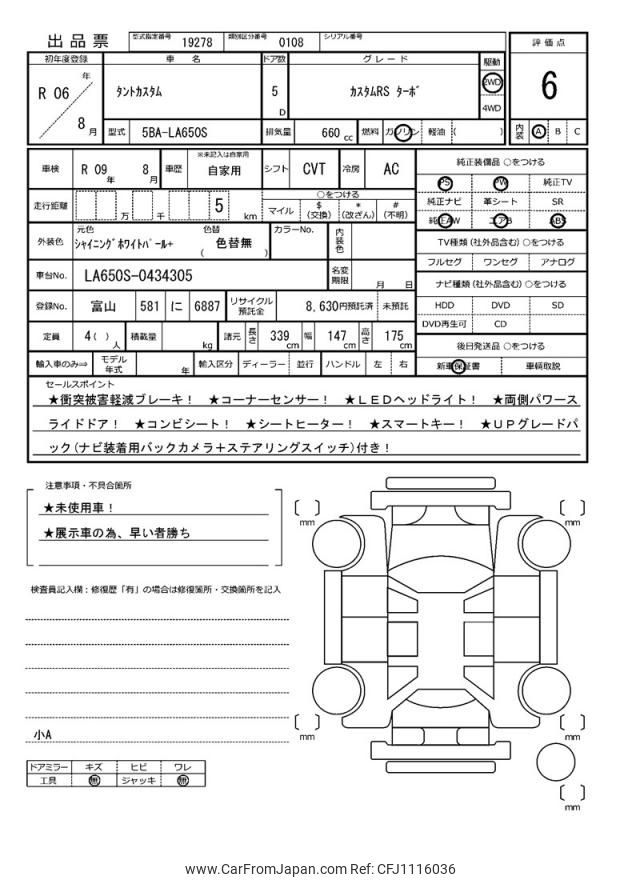 出品票 型式指定番号 19278 類別区分番号 0108 シリアル番号
評価点
6
内装 A B C
初年度登録 車名 ドア数 グレード 駆動
R 06 年 8 月 タントカスタム 5 D カスタムRS ターボ 2WD 4WD
型式 5BA-LA650S 排気量 660 cc 燃料 ガソリン 軽油 ( )
車検 R 09 年 8 月 車歴 ※未記入は自家用 自家用 シフト CVT 冷房 AC
走行距離 万 千 5 km
○をつける
マイル $(交換) *(改ざん) #(不明)
外装色 元色 シャイニングホワイトパール+ 色替 ( 色替無 ) カラーNo. 内装色
車台No. LA650S-0434305 名変期限 月 日
登録No. 富山 581 に 6887 リサイクル預託金 8,630円預託済 未預託
定員 4( ) 人 積載量 kg 諸元 長さ 339 cm 幅 147 cm 高さ 175 cm
輸入車のみ⇒ モデル年式 年 輸入区分 ディーラー 並行 ハンドル 左 右
純正装備品 ○をつける
PS PW 純正TV
純正ナビ 革シート SR
純正AW エアB ABS
TV種類 (社外品含む) ○をつける
フルセグ ワンセグ アナログ
ナビ種類 (社外品含む) ○をつける
HDD DVD SD
DVD再生可 CD
後日発送品 ○をつける
新車保証書 車輌取説
セールスポイント
★衝突被害軽減ブレーキ! ★コーナーセンサー! ★LEDヘッドライト! ★両側パワース
ライドドア! ★コンビシート! ★シートヒーター! ★スマートキー! ★UPグレードパ
ック(ナビ装着用バックカメラ+ステアリングスイッチ)付き!
注意事項・不具合箇所
★未使用車!
★展示車の為、早い者勝ち
検査員記入欄:修復歴「有」の場合は修復箇所・交換箇所を記入
小A
ドアミラー キズ ヒビ ワレ
工具 無 ジャッキ 無
[ ] mm [ ] mm
[ ] mm [ ] mm
[ ] mm
www.CarFromJapan.com Ref: CFJ1116036